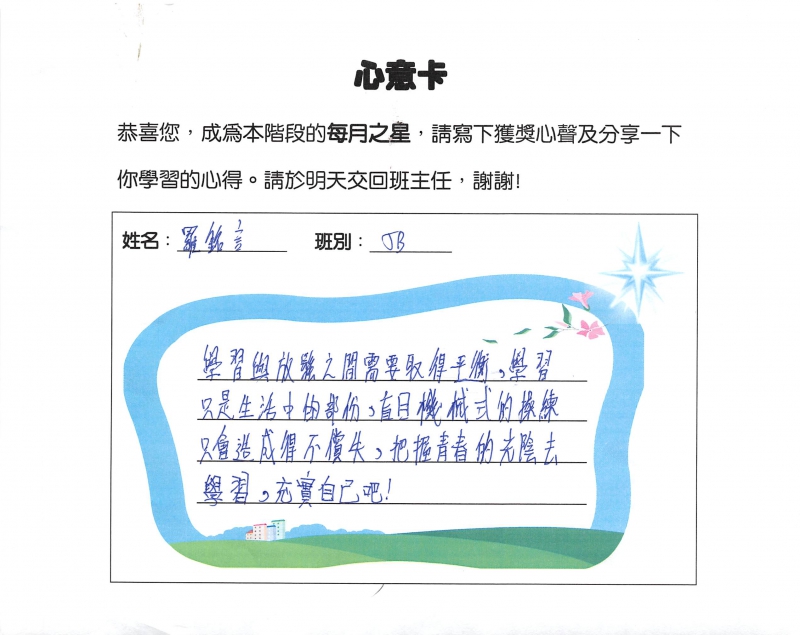 心意卡
恭喜您，成為本階段的每月之星，請寫下獲獎心聲及分享一下
你學習的心得。請於明天交回班主任，謝謝!
姓名：羅銘言 班別：5B
學習與放鬆之間需要取得平衡，學習
只是生活中的部份，盲目機械式的操練
只會造成得不償失，把握青春的光陰去
學習，充實自己吧!